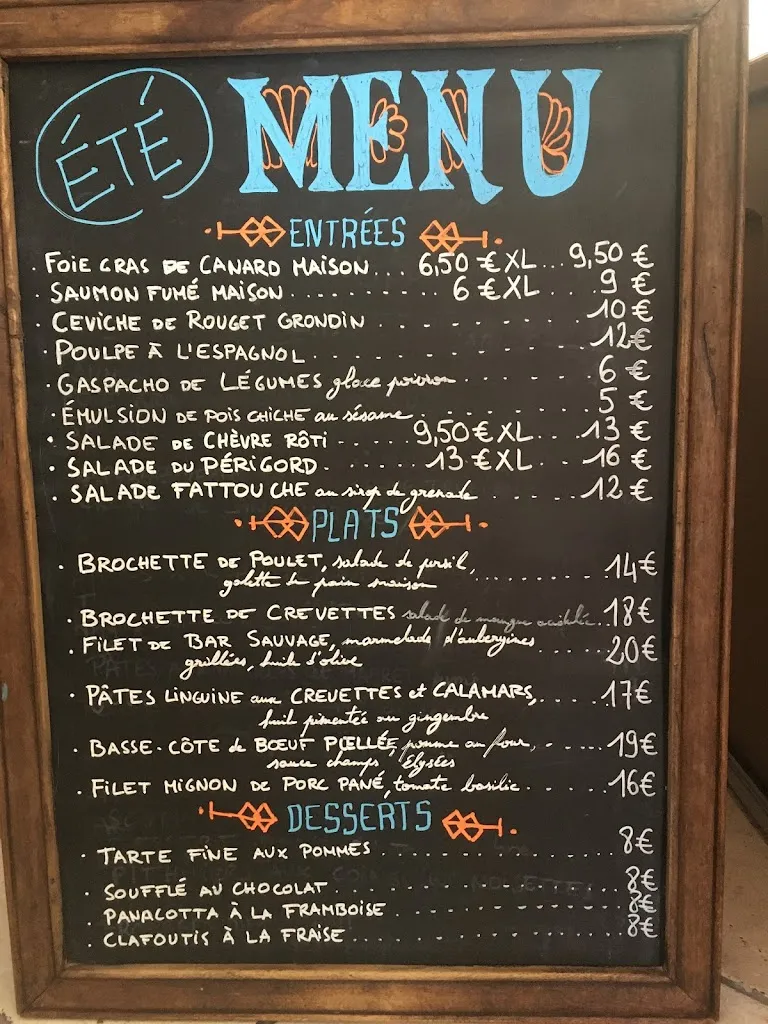 ÉTÉ MENU
ENTRÉES
. FOIE GRAS DE CANARD MAISON... 6,50 € XL... 9,50 €
. SAUMON FUMÉ MAISON......... 6 € XL.... 9 €
. CEVICHE DE ROUGET GRONDIN......... 10 €
. POULPE À L'ESPAGNOL............ 12€
. GASPACHO DE LÉGUMES glace poivron...... 6 €
. ÉMULSION DE POIS CHICHE au sésame........ 5 €
. SALADE DE CHÈVRE RÔTI..... 9,50 € XL... 13 €
. SALADE DU PÉRIGORD...... 13 € XL... 16 €
. SALADE FATTOUCHE au sirop de grenade...... 12 €
PLATS
. BROCHETTE DE POULET, salade de persil,
galette de pain maison.......... 14€
. BROCHETTE DE CREVETTES salade de mangue ... 18€
. FILET DE BAR SAUVAGE, marmelade d'aubergines
grillées, huile d'olive...... 20€
. PÂTES LINGUINE aux CREVETTES et CALAMARS,..... 17€
huile pimentée au gingembre
. BASSE-CÔTE de BŒUF POELLÉE, pomme au four,...... 19€
sauce champs Élysées
. FILET MIGNON DE PORC PANÉ, tomate basilic..... 16€
DESSERTS
. TARTE FINE AUX POMMES............ 8€
. SOUFFLÉ AU CHOCOLAT............ 8€
. PANACOTTA À LA FRAMBOISE.......... 8€
. CLAFOUTIS À LA FRAISE............ 8€